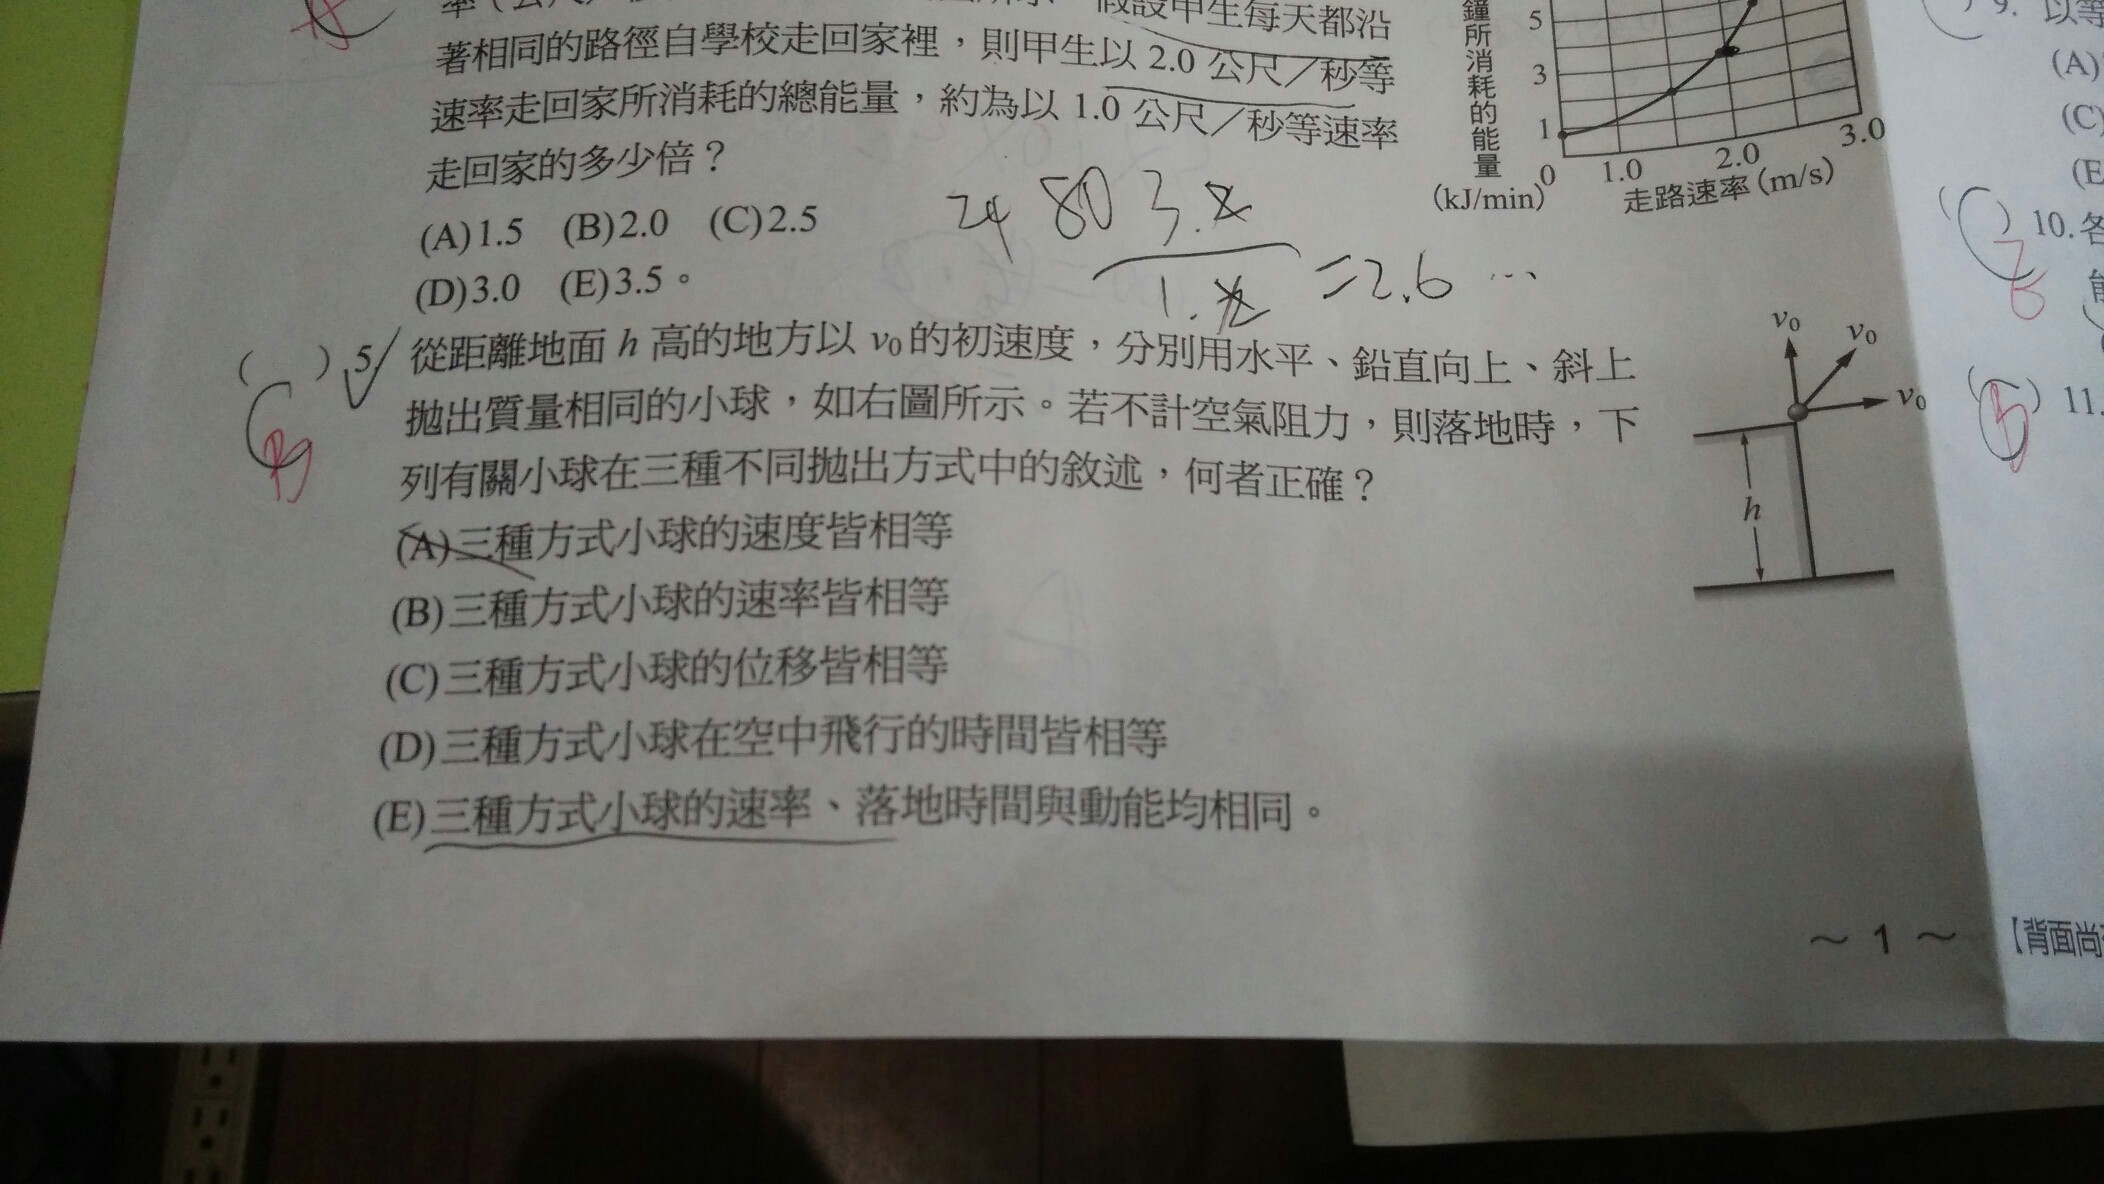 率(公尺/
假設甲生每天都沿
著相同的路徑自學校走回家裡，則甲生以 2.0 公尺／秒等
速率走回家所消耗的總能量，約為以 1.0 公尺／秒等速率
走回家的多少倍？
(A)1.5 (B)2.0 (C)2.5
(D)3.0 (E)3.5。
鐘所消耗的能量
(kJ/min)
5
3
1
0 1.0 2.0 3.0
走路速率(m/s)
24 80
=2.6 ...
( ) 5. 從距離地面 h 高的地方以 v₀ 的初速度，分別用水平、鉛直向上、斜上
拋出質量相同的小球，如右圖所示。若不計空氣阻力，則落地時，下
列有關小球在三種不同拋出方式中的敘述，何者正確？
(A)三種方式小球的速度皆相等
(B)三種方式小球的速率皆相等
(C)三種方式小球的位移皆相等
(D)三種方式小球在空中飛行的時間皆相等
(E)三種方式小球的速率、落地時間與動能均相同。
v₀
v₀
v₀
h
～ 1 ～
【背面尚
9. 以等
(A)
(C)
(E
( ) 10. 各
( ) 11.